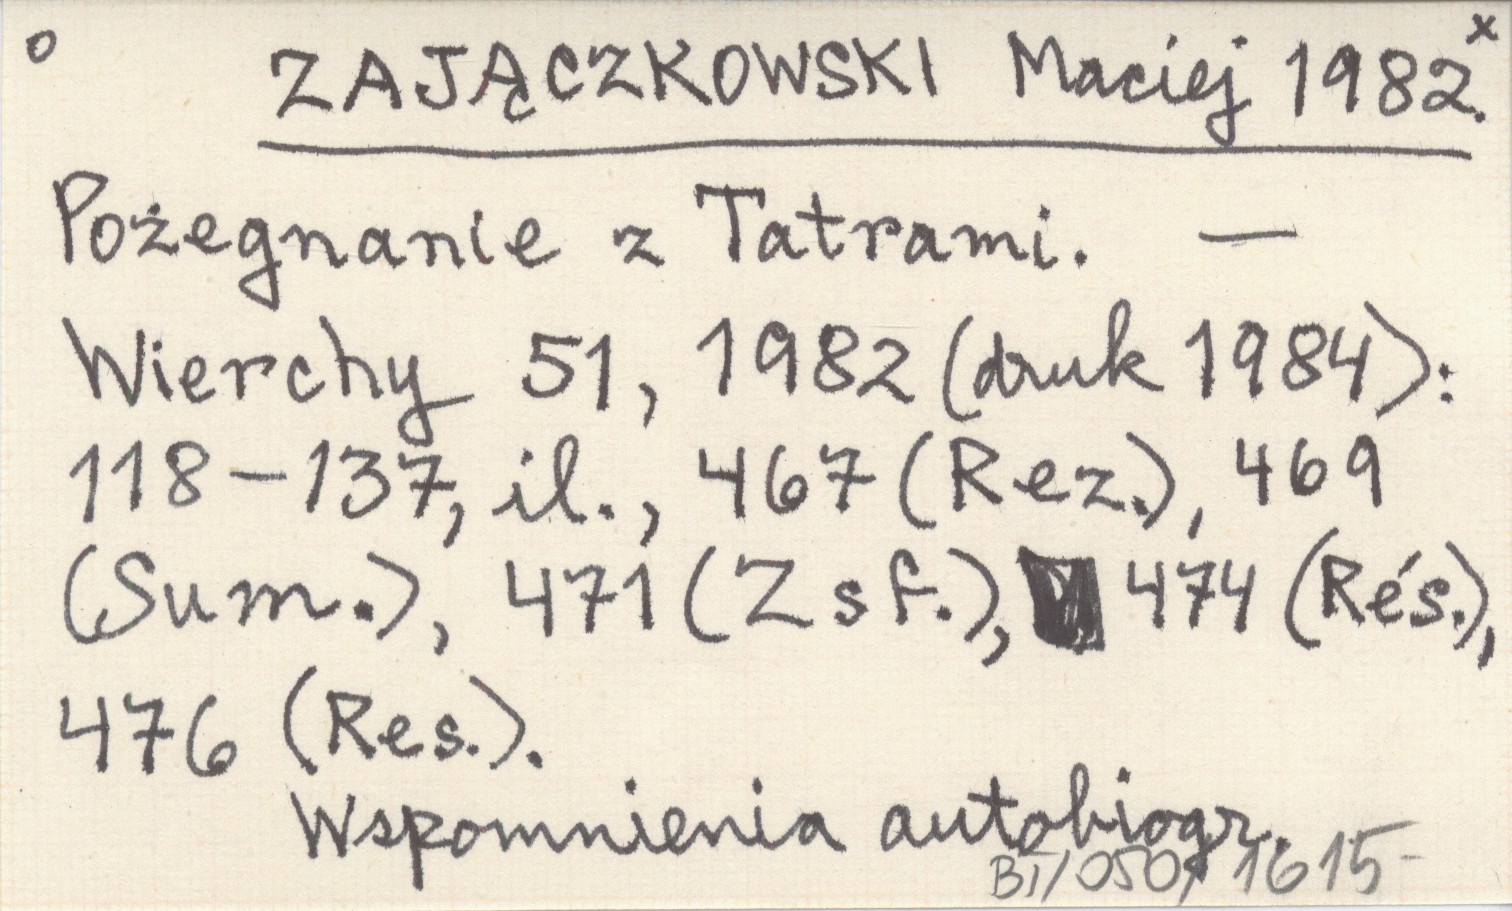 o ZAJĄCZKOWSKI Maciej 1982.x
Pożegnanie z Tatrami. —
Wierchy 51, 1982 (druk 1984):
118–137, il., 467 (Rez.), 469
(Sum.), 471 (Zsf.), 474 (Rés.),
476 (Res.).
Wspomnienia autobiogr.
BT/050/1615-